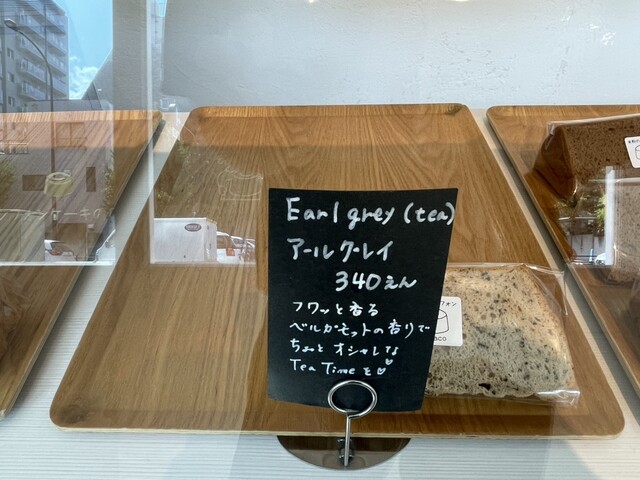 Earl grey (tea)
アールグレイ
340えん
フワッと香る
ベルガモットの香りで
ちょっとオシャレな
Tea Timeを♡
フォン
aco